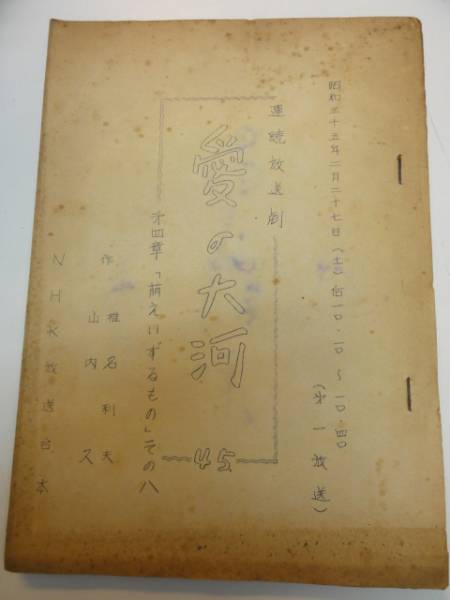 昭和三十五年二月二十七日(土)后一〇・一〇～一〇・四〇
(第一放送)
連続放送劇
愛の大河
45
第四章「萠えいずるもの」その八
作 椎名利夫
山内久
NHK放送台本